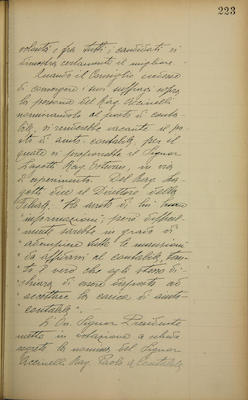 223
volontà, fra tutti i candidati si
dimostra certamente il migliore.
Quando il Consiglio credesse
di convergere i suoi suffragi sopra
la persona del Rag.
nominandolo al posto di conta-
bile, si renderebbe vacante il po-
sto di aiuto-contabile, per il
quale si proporrebbe il Signor
Rag. in via
di esperimento. Del Rag.
dice il Direttore della
"Ho avuto di lui buone
"informazioni; però difficil-
"mente sarebbe in grado di
"adempiere tutte le mansioni
"da affidarsi al contabile, tan-
"to è vero che egli stesso di-
"chiara di essere disposto ad
"accettare la carica di aiuto-
"contabile".
Il Signor Presidente
mette in votazione a schede
segrete la nomina del Signor
Rag. Paolo a Contabile